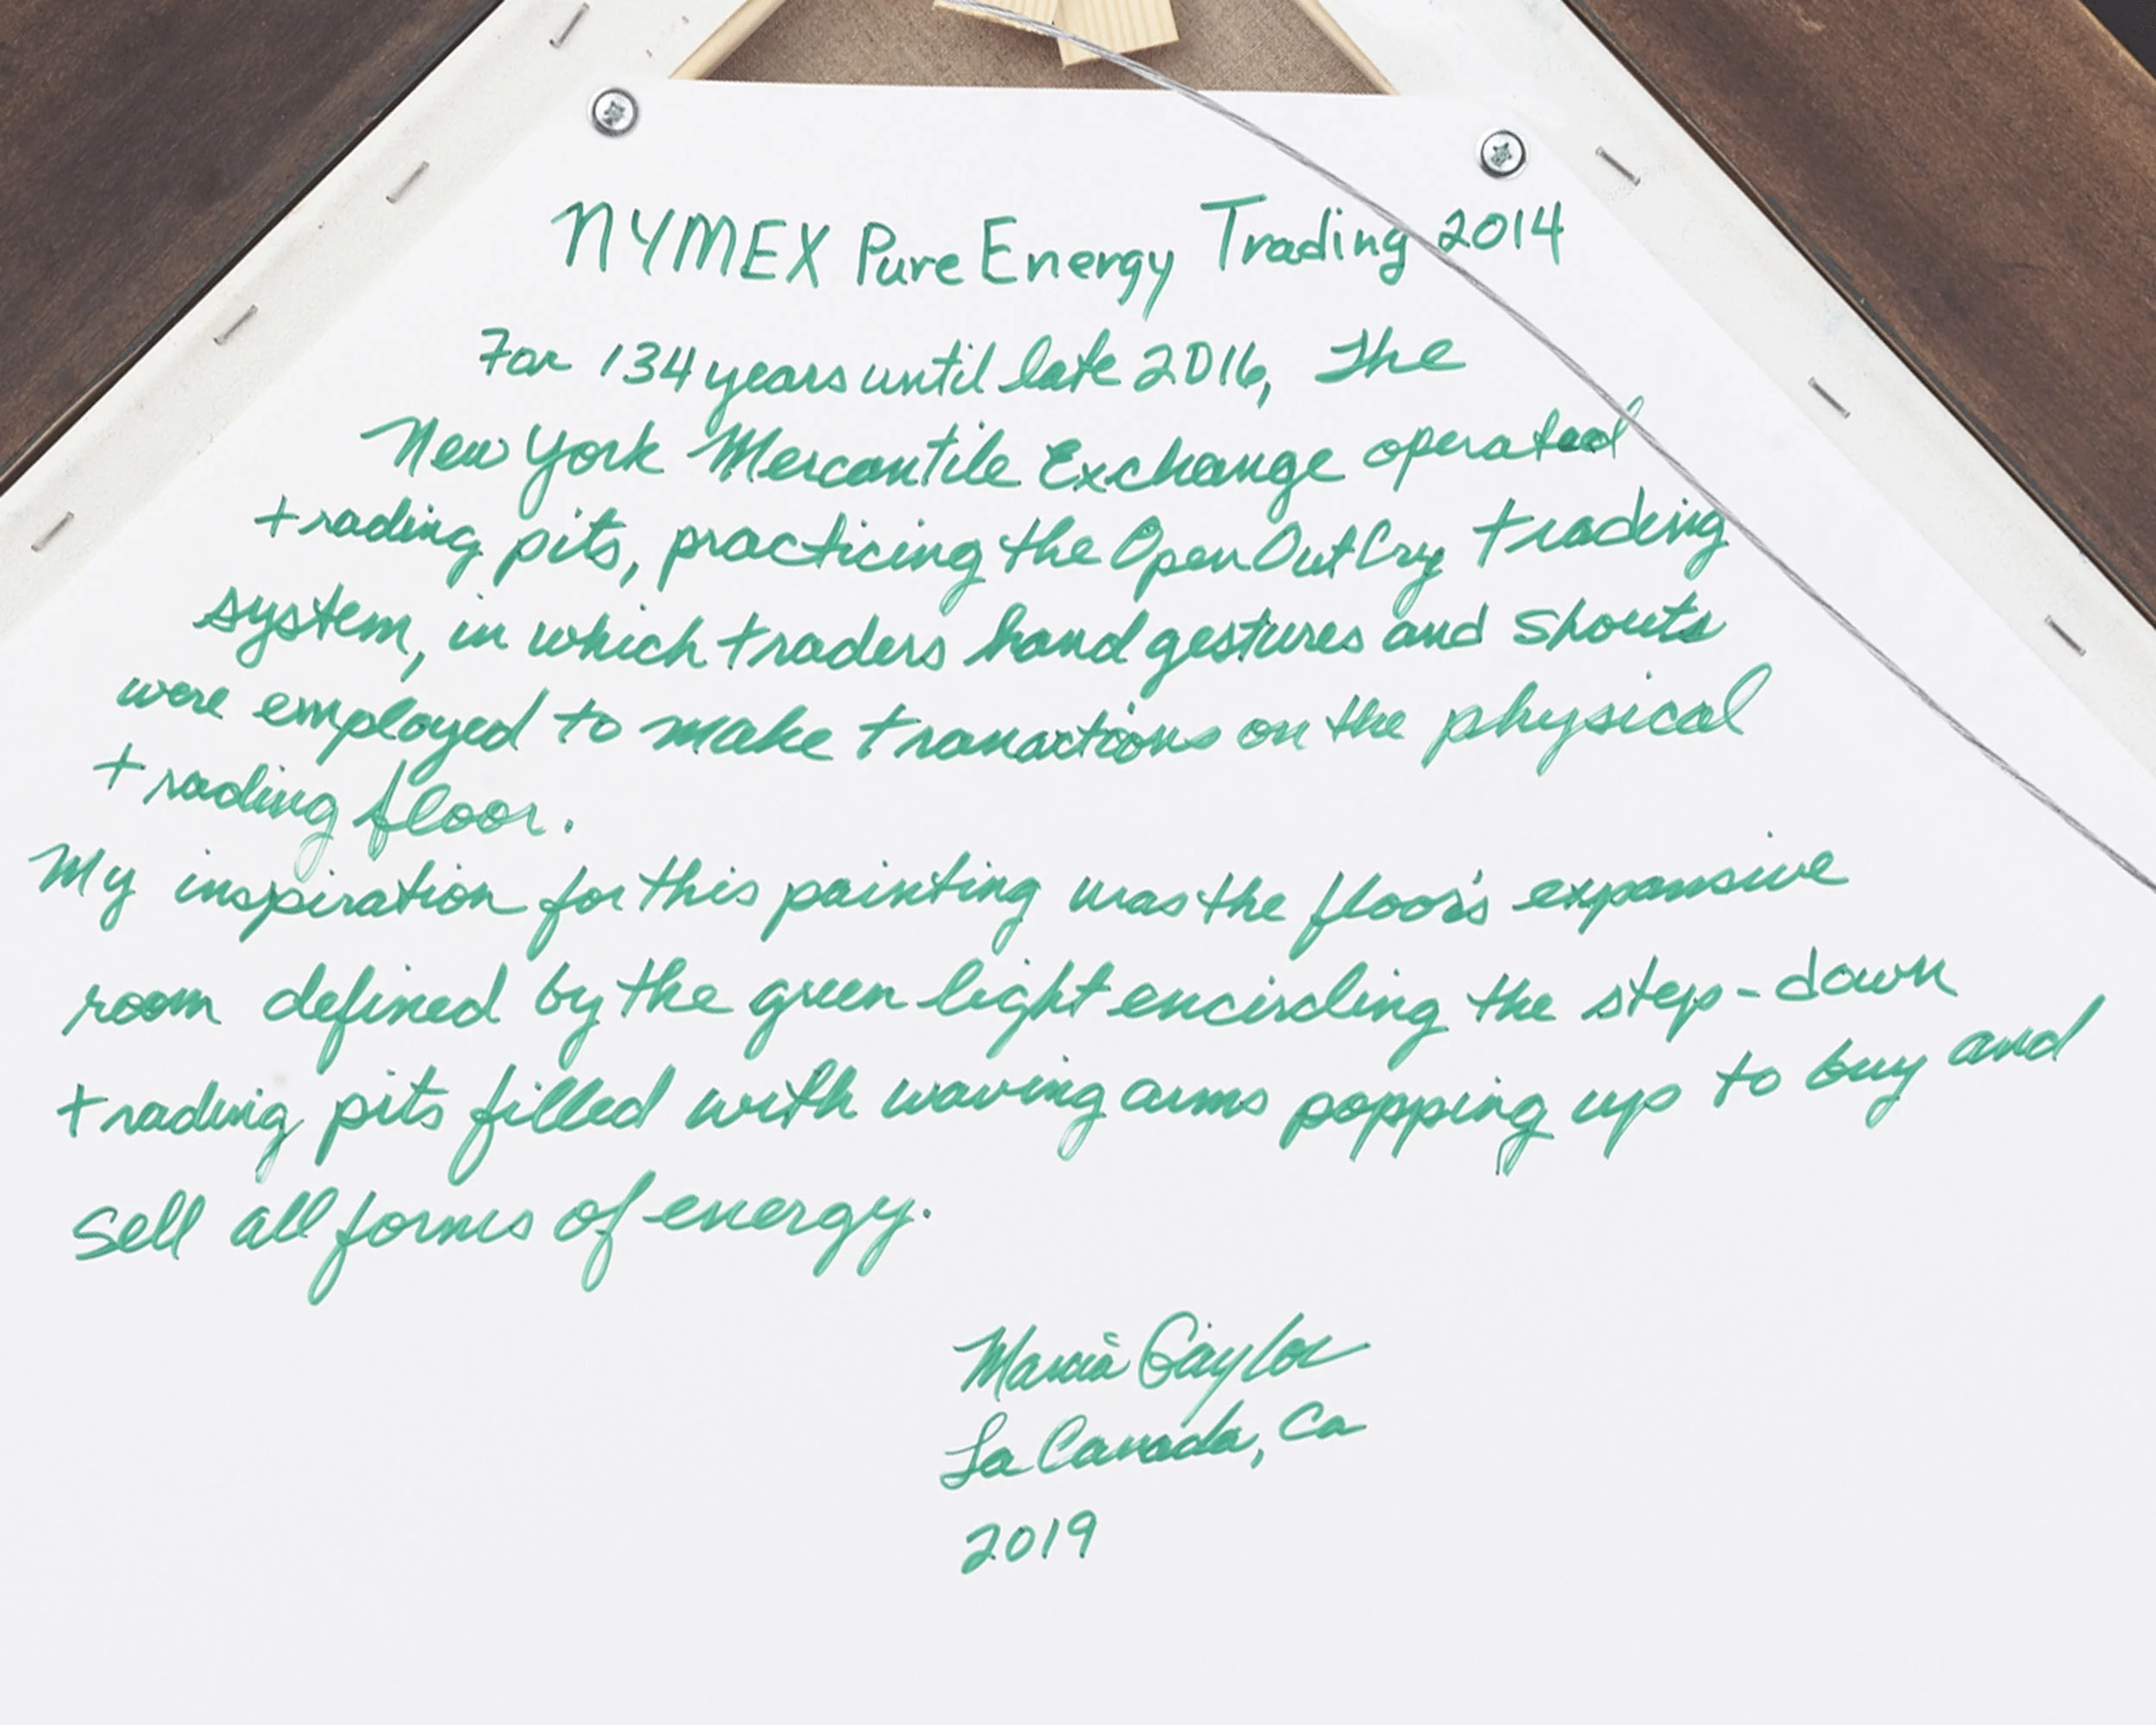 NYMEX Pure Energy Trading 2014
For 134 years until late 2016, The
New York Mercantile Exchange operated
trading pits, practicing the Open Out Cry trading
system, in which traders hand gestures and shouts
were employed to make tranactions on the physical
trading floor.
My inspiration for this painting was the floor's expansive
room defined by the green light encircling the step-down
trading pits filled with waving arms popping up to buy and
sell all forms of energy.
Marcia Gaylor
La Canada, Ca
2019